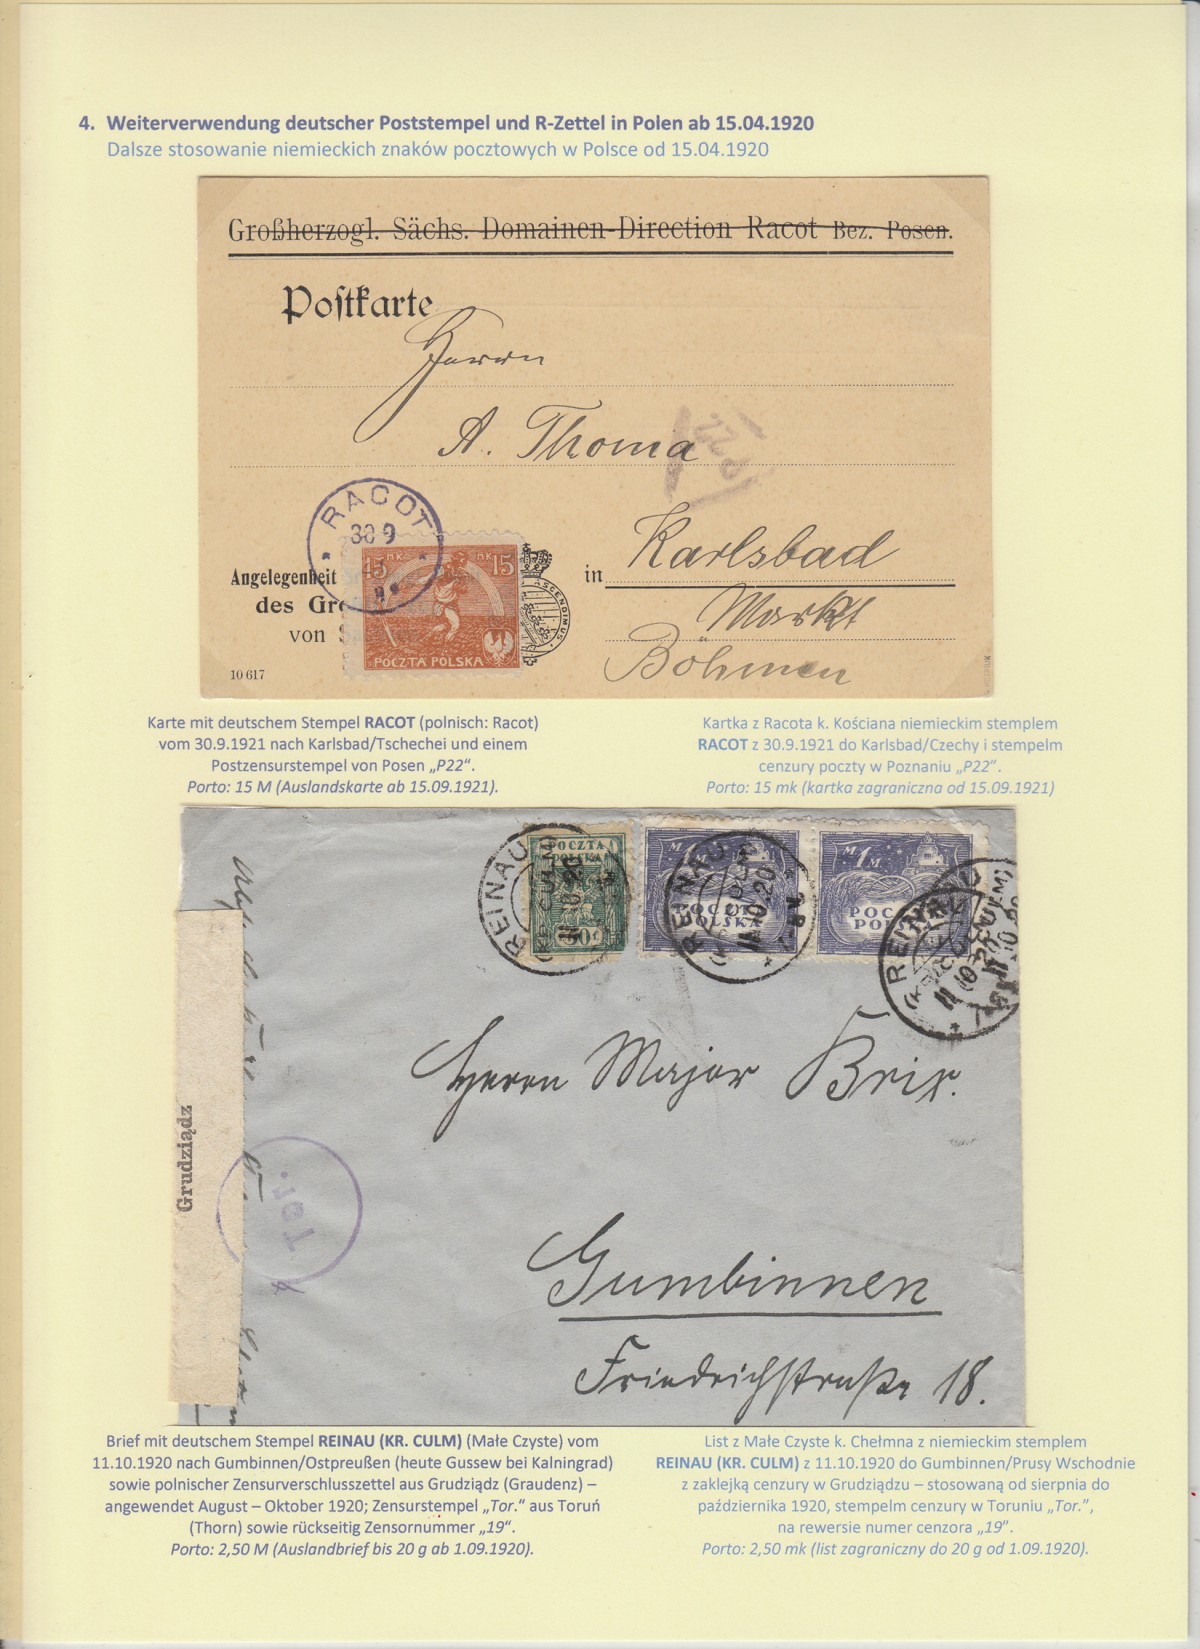 4. Weiterverwendung deutscher Poststempel und R-Zettel in Polen ab 15.04.1920
Dalsze stosowanie niemieckich znaków pocztowych w Polsce od 15.04.1920
Großherzogl. Sächs. Domainen-Direction Racot Bez. Posen.
Postkarte
Herrn
A. Thoma
P 22
RACOT
30 9
15 MK MK 15
POCZTA POLSKA
ASCENDIMUS
Angelegenheit
des Gro
von S
in Karlsbad
Markt
Böhmen
10 617
Karte mit deutschem Stempel RACOT (polnisch: Racot)
vom 30.9.1921 nach Karlsbad/Tschechei und einem
Postzensurstempel von Posen „P22“.
Porto: 15 M (Auslandskarte ab 15.09.1921).
Kartka z Racota k. Kościana niemieckim stemplem
RACOT z 30.9.1921 do Karlsbad/Czechy i stempelm
cenzury poczty w Poznaniu „P22”.
Porto: 15 mk (kartka zagraniczna od 15.09.1921)
POCZTA POLSKA
50
M 1 M
POCZTA POLSKA
M 1 M
POC
POL
REINAU
(KR. CULM)
11.10.20
REINAU
(KR. CULM)
11.10.20
7-8 V
REINAU
(KR. CULM)
11.10.20
Herrn Major Brix.
Gumbinnen
Friedrichstraße 18.
Grudziądz
Tor.
Brief mit deutschem Stempel REINAU (KR. CULM) (Małe Czyste) vom
11.10.1920 nach Gumbinnen/Ostpreußen (heute Gussew bei Kalningrad)
sowie polnischer Zensurverschlusszettel aus Grudziądz (Graudenz) –
angewendet August – Oktober 1920; Zensurstempel „Tor.“ aus Toruń
(Thorn) sowie rückseitig Zensornummer „19“.
Porto: 2,50 M (Auslandbrief bis 20 g ab 1.09.1920).
List z Małe Czyste k. Chełmna z niemieckim stemplem
REINAU (KR. CULM) z 11.10.1920 do Gumbinnen/Prusy Wschodnie
z zaklejką cenzury w Grudziądzu – stosowaną od sierpnia do
października 1920, stempelm cenzury w Toruniu „Tor.”,
na rewersie numer cenzora „19”.
Porto: 2,50 mk (list zagraniczny do 20 g od 1.09.1920).